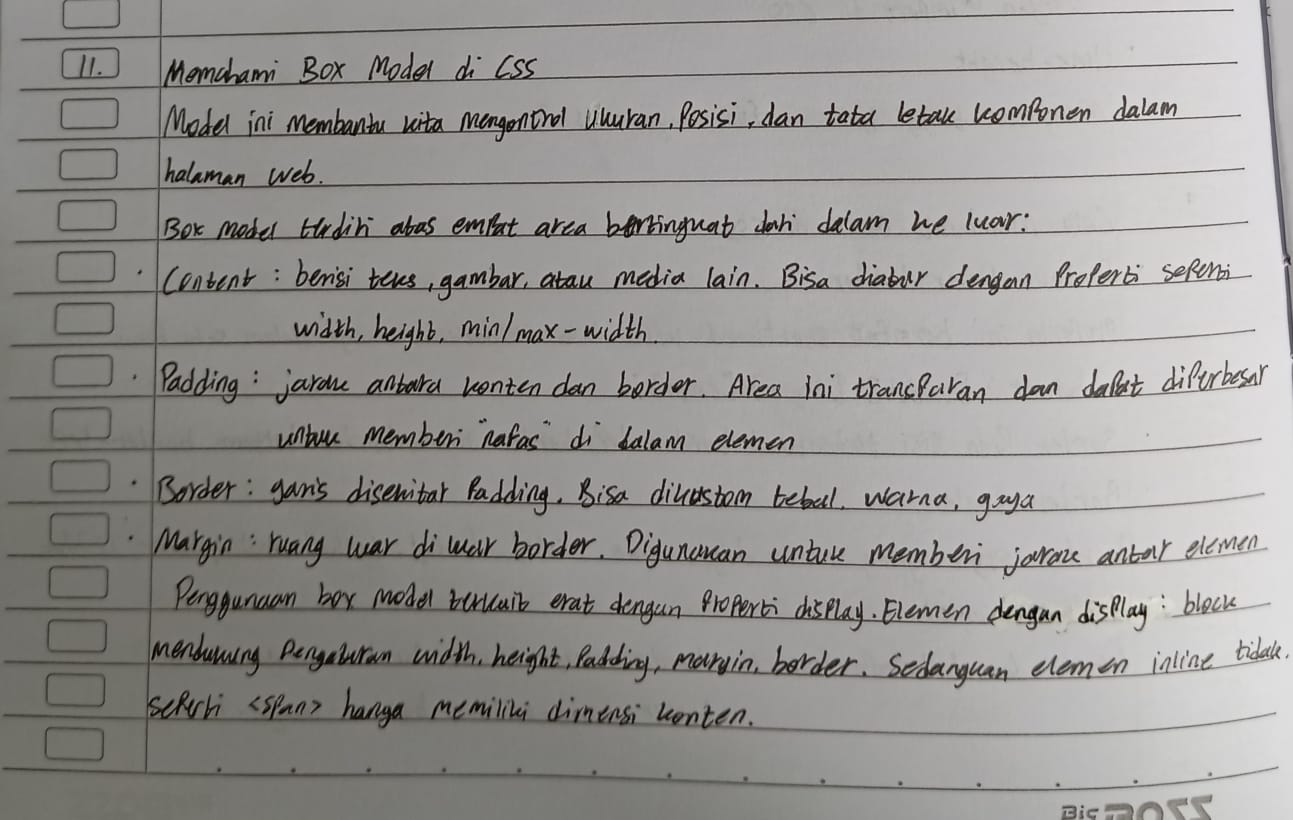 11. Memahami Box Model di CSS
Model ini membantu kita mengontrol ukuran, posisi, dan tata letak komponen dalam
halaman web.
Box model terdiri atas empat area bertingkat dari dalam ke luar:
· Content : berisi teks, gambar, atau media lain. Bisa diatur dengan properti seperti
width, height, min/max-width.
· Padding : jarak antara konten dan border. Area ini transparan dan dapat diperbesar
untuk memberi "nafas" di dalam elemen
· Border : garis disekitar padding. Bisa dikustom tebal, warna, gaya
· Margin : ruang luar di luar border. Digunakan untuk memberi jarak antar elemen
Penggunaan box model terkait erat dengan properti display. Elemen dengan display : block
mendukung pengaturan width, height, padding, margin, border. Sedangkan elemen inline tidak.
seperti <span> hanya memiliki dimensi konten.
Big BOSS